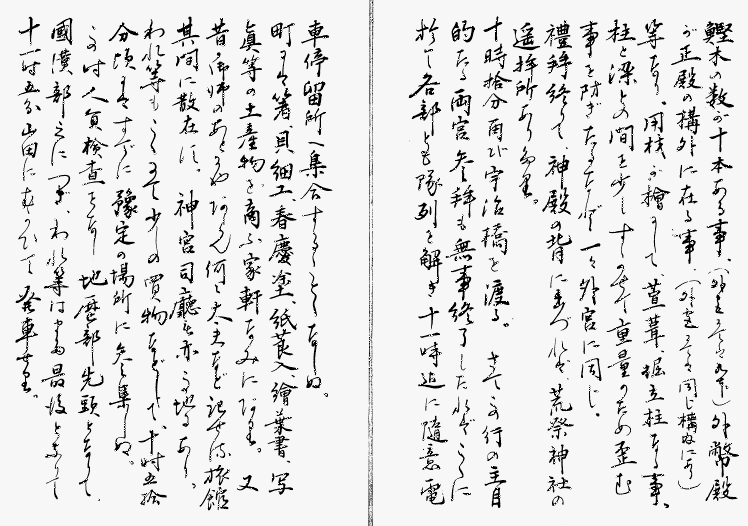 鰹木の数が十本ある事、(外宮にては九本)外幣殿
が正殿の構外に在る事、(外宮にては同じ構内にあり)
等なり。用材は檜にして、萱葺掘立柱なる事、
柱と梁との間を少しすかせて重量のため歪む
事を防ぎたるなど一々外宮に同じ。
禮拜終りて、神殿の背に まづれば、荒祭神社の
遥拜所あり
十時拾分再び宇治橋を渡る。さてこの行の主目
的たる両宮参拜も無事終了したればここに
於て各部とも隊列を解き十一時迄に随意電
車停留所へ集合することとなりぬ。
町には箸、貝細工、春慶塗、紙莨入、繪葉書、写
真等の土産物を商ふ家軒なみにならべり。又
昔御師のあと 何々大夫など記せる旅館
其間に散在す。神宮司廳も亦この地にあり。
われ等もここにて少しの買物などして、十時五拾
分頃にはすでに豫定の場所に参集しぬ。
この時人員検査をなし 地歴部先頭となりて、
國漢部之につぎ、われ等は 最後となりて
十一時五分山田にむかひて発車せり。